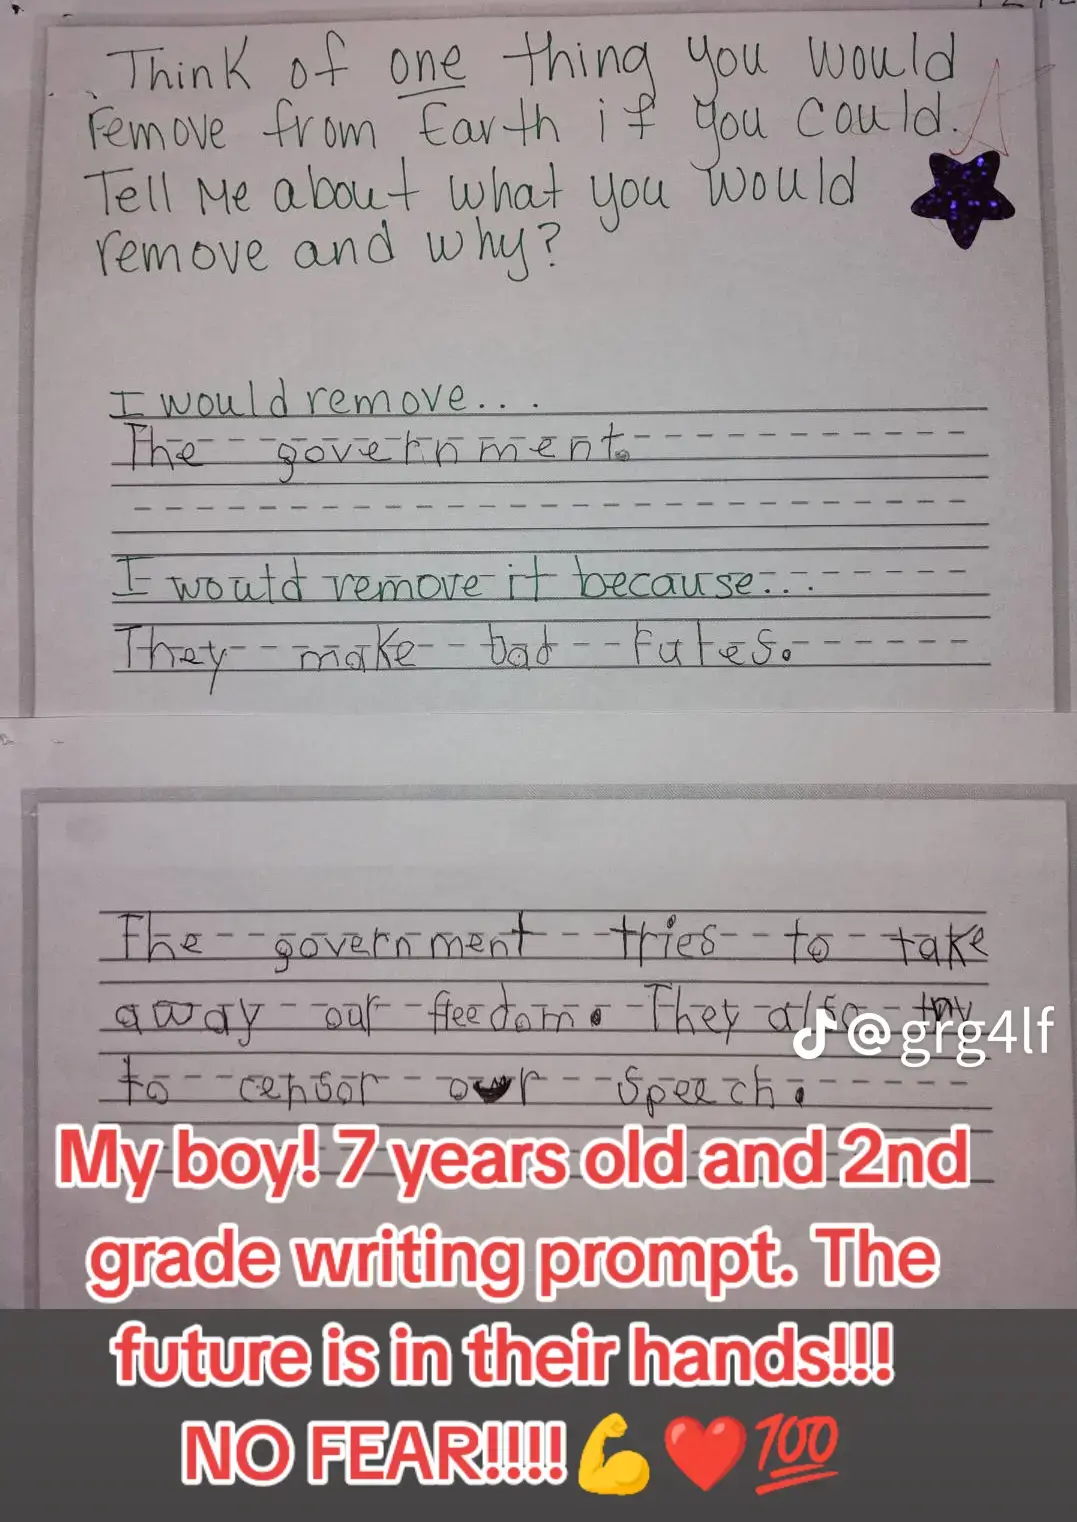 Think of one thing you would
remove from Earth if you could.
Tell Me about what you would
remove and why?
A
I would remove...
The government.
I would remove it because...
They make bad rules.
The government tries to take
away our freedom. They also try
to censor our speech.
@grg4lf
My boy! 7 years old and 2nd
grade writing prompt. The
future is in their hands!!!
NO FEAR!!!!💪❤️💯